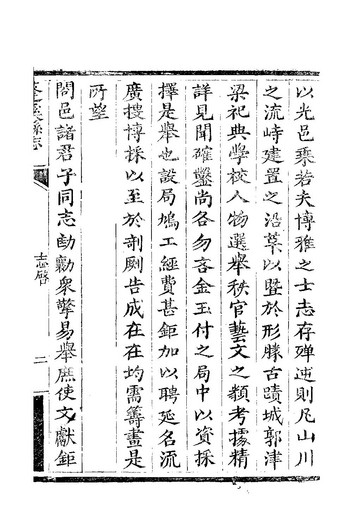 以光邑乘若夫博雅之士志存殫述則凡山川
之流峙建置之沿革以曁於形勝古蹟城郭津
梁祀典學校人物選舉秩官藝文之類考據精
詳見聞確鑿尚各勿吝金玉付之局中以資採
擇是舉也設局鳩工經費甚鉅加以聘延名流
廣搜博採以至於剞劂告成在在均需籌畫是
所望
閤邑諸君子同志勷勷衆擎易舉庶使文獻鉅
縣志
志啓
二